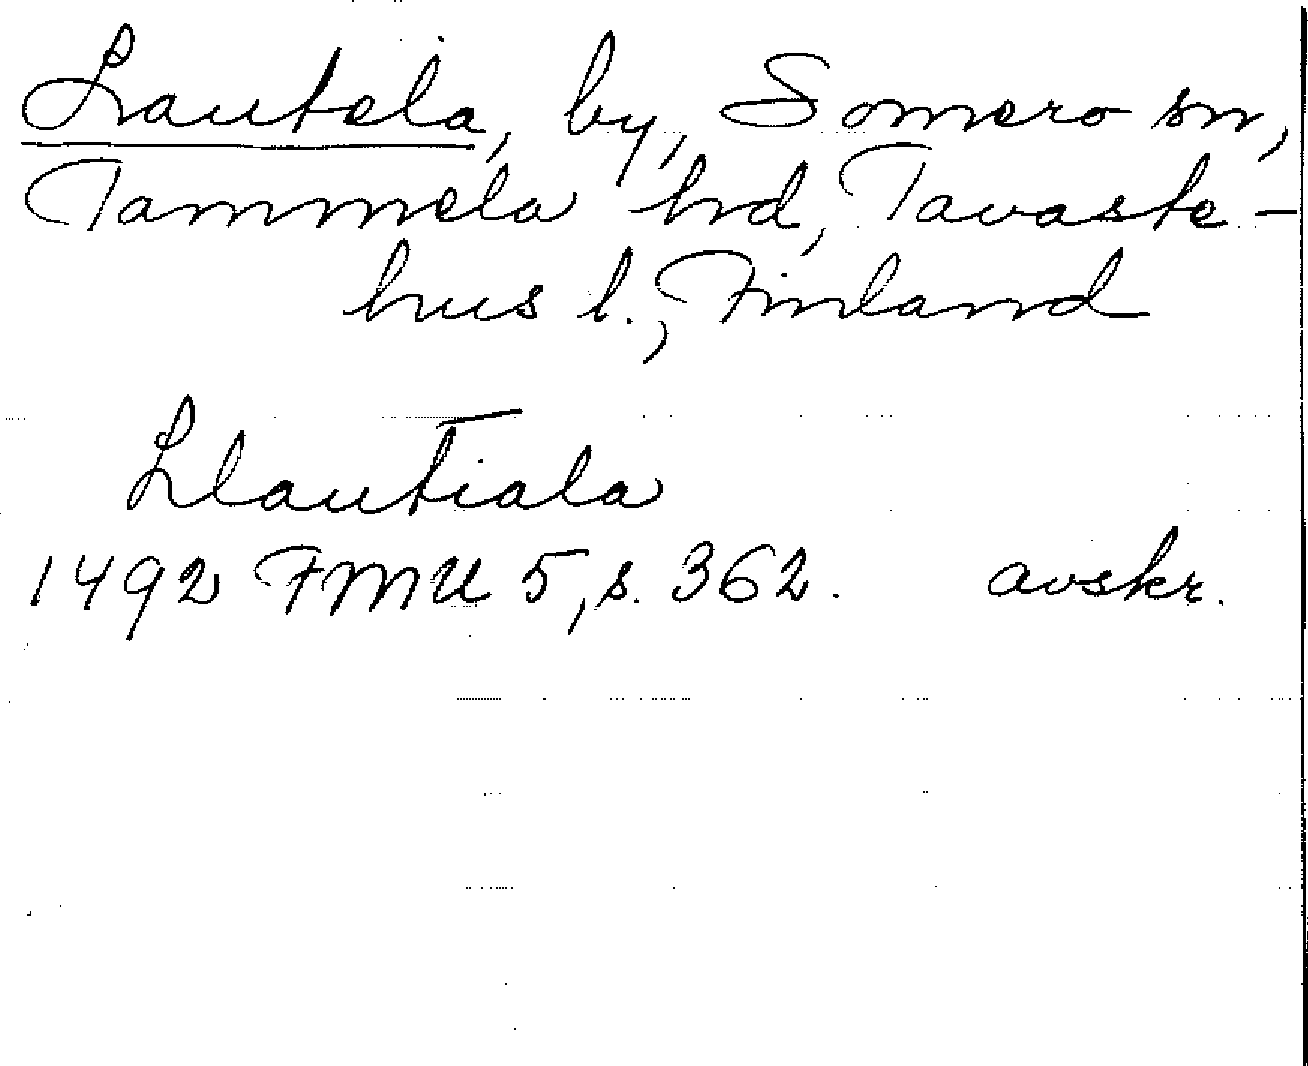 Lautela, by, Somero sn,
Tammela hrd, Tavaste-
hus l., Finland
Llautiala
1492 FMU 5, s. 362. avskr.